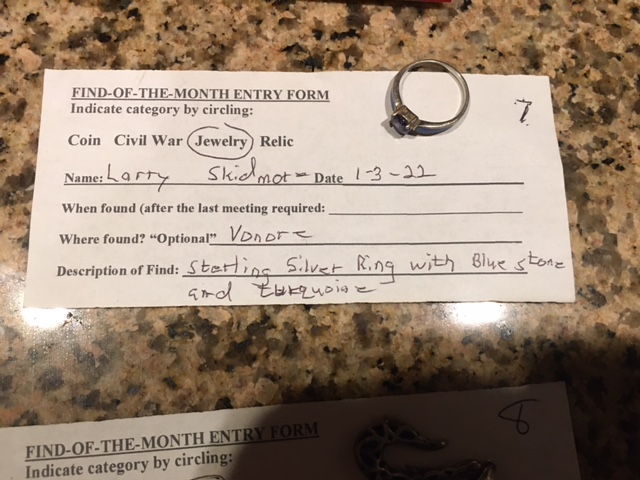 FIND-OF-THE-MONTH ENTRY FORM
7.
Indicate category by circling:
Coin Civil War Jewelry Relic
Name: Larry Skidmore Date 1-3-22
When found (after the last meeting required:
Where found? "Optional" Vonore
Description of Find: Sterling Silver Ring with Blue stone
and turquoise
8
FIND-OF-THE-MONTH ENTRY FORM
Indicate category by circling: